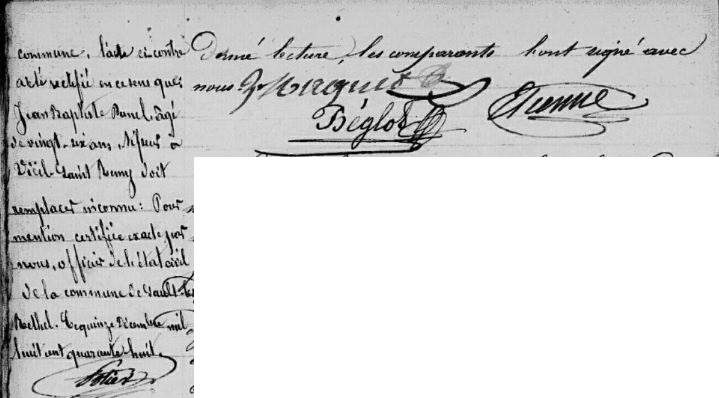 commune, l'acte ci contre
a été rectifié en ce sens que
Jean Baptiste Runel, âgé
de vingt-six ans, Tisseur à
Viel-Saint Remy doit
remplacer inconnu: Pour
mention certifiée exacte par
nous, officier de l'état civil
de la commune de Sault-les
Rethel. Le quinze Décembre mil
huit cent quarante huit.
Donné lecture, les comparants l'ont signé avec
nous
Béglot
Etienne